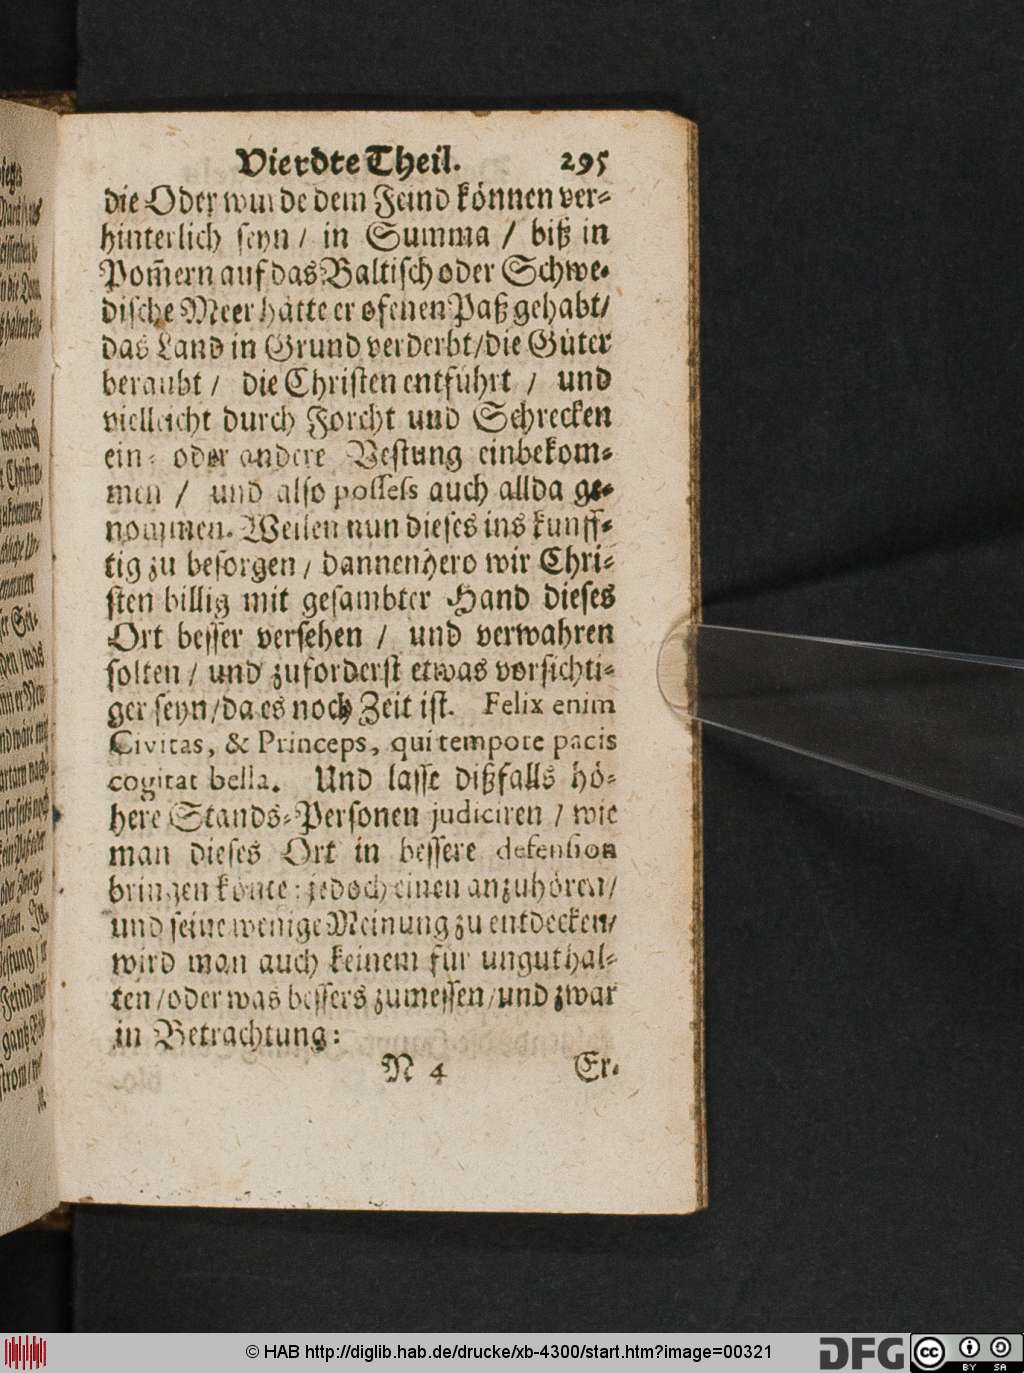 Vierdte Theil. 295
die Oder wurde dem Feind können ver-
hinterlich seyn / in Summa / biß in
Pom̃ern auf das Baltisch oder Schwe-
dische Meer hätte er ofenen Paß gehabt/
das Land in Grund verderbt/die Güter
beraubt / die Christen entführt / und
villeicht durch Forcht und Schrecken
ein- oder andere Vestung einbekom-
men / und also possess auch allda ge-
nommen. Weilen nun dieses ins künff-
tig zu besorgen / dannenhero wir Chri-
sten billig mit gesambter Hand dieses
Ort besser versehen / und verwahren
solten / und zuforderst etwas vorsichti-
ger seyn/da es noch Zeit ist. Felix enim
Civitas, & Princeps, qui tempore pacis
cogitat bella. Und lasse dißfalls hö-
here Stands-Personen judiciren / wie
man dieses Ort in bessere defension
bringen könte: jedoch einen anzuhören/
und seine wenige Meinung zu entdecken/
wird man auch keinem für ungut hal-
ten/oder was bessers zumessen/und zwar
in Betrachtung:
N 4 Er-
© HAB http://diglib.hab.de/drucke/xb-4300/start.htm?image=00321
DFG
cc BY SA